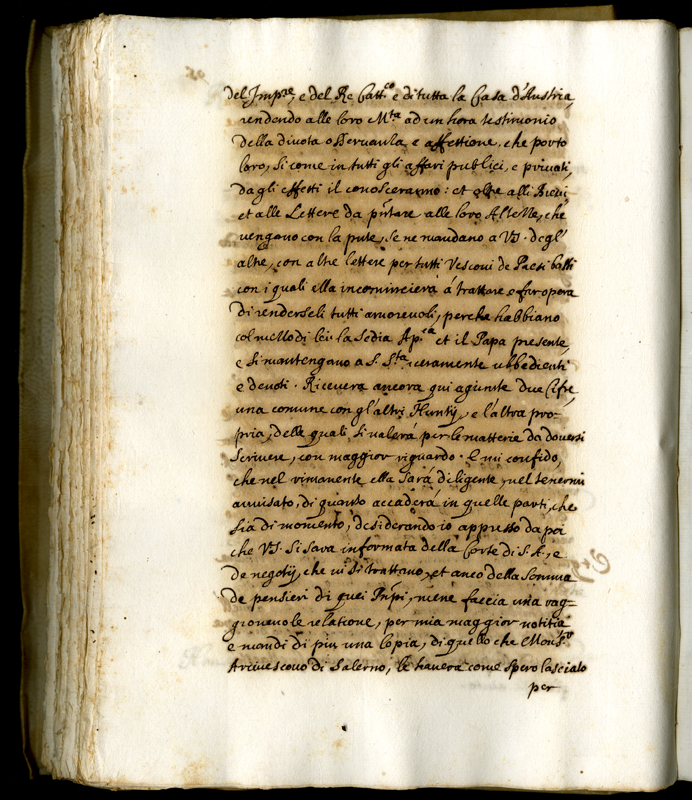 del Imp.re, e del Re Catt.co e di tutta la Casa d'Austria,
rendendo alle loro M.ta ad un hora testimonio
della divota osservanza e affettione, che porto
loro, si come in tutti gli affari publici, e privati,
dagli effetti il conosceranno: et oltre alli Brevi
et alle Lettere da pñtare alle loro Altezze, che
vengono con la pñte, se ne mandano a VS. degl'
altri, con altre lettere per tutti Vescovi de Paesi bassi
con i quali ella incomincierà á trattare e far opera
di renderseli tutti amorevoli, perche habbiano
col mezzo di lei la Sedia Ap.ca et il Papa presente,
e si mantengano a S. S.ta, ceramente ubbedienti
e devoti. Ricevera ancora qui agiunte due Cifre,
una comune con gl'altri Nuntij, e l'altra pro-
pria, delle quali si valerá per le matterie da doversi
scrivere, con maggior riguardo. E mi confido,
che nel rimanente ella sará diligente nel tenermi
avvisato, di quanto accaderá in quelle parti, che
sia di momento, desiderando io appresso da poi
che VS. si sara informata della Corte di S. A., e
de negotij, che vi si trattano, et anco della somma
de pensieri di quei Pñpi, mene faccia una rag-
gionevole relatione, per mia maggior notitia
e mandi di piu una Copia, di quello che Mons.r
Arcivescovo di Salerno, le havera come spero lasciato
per